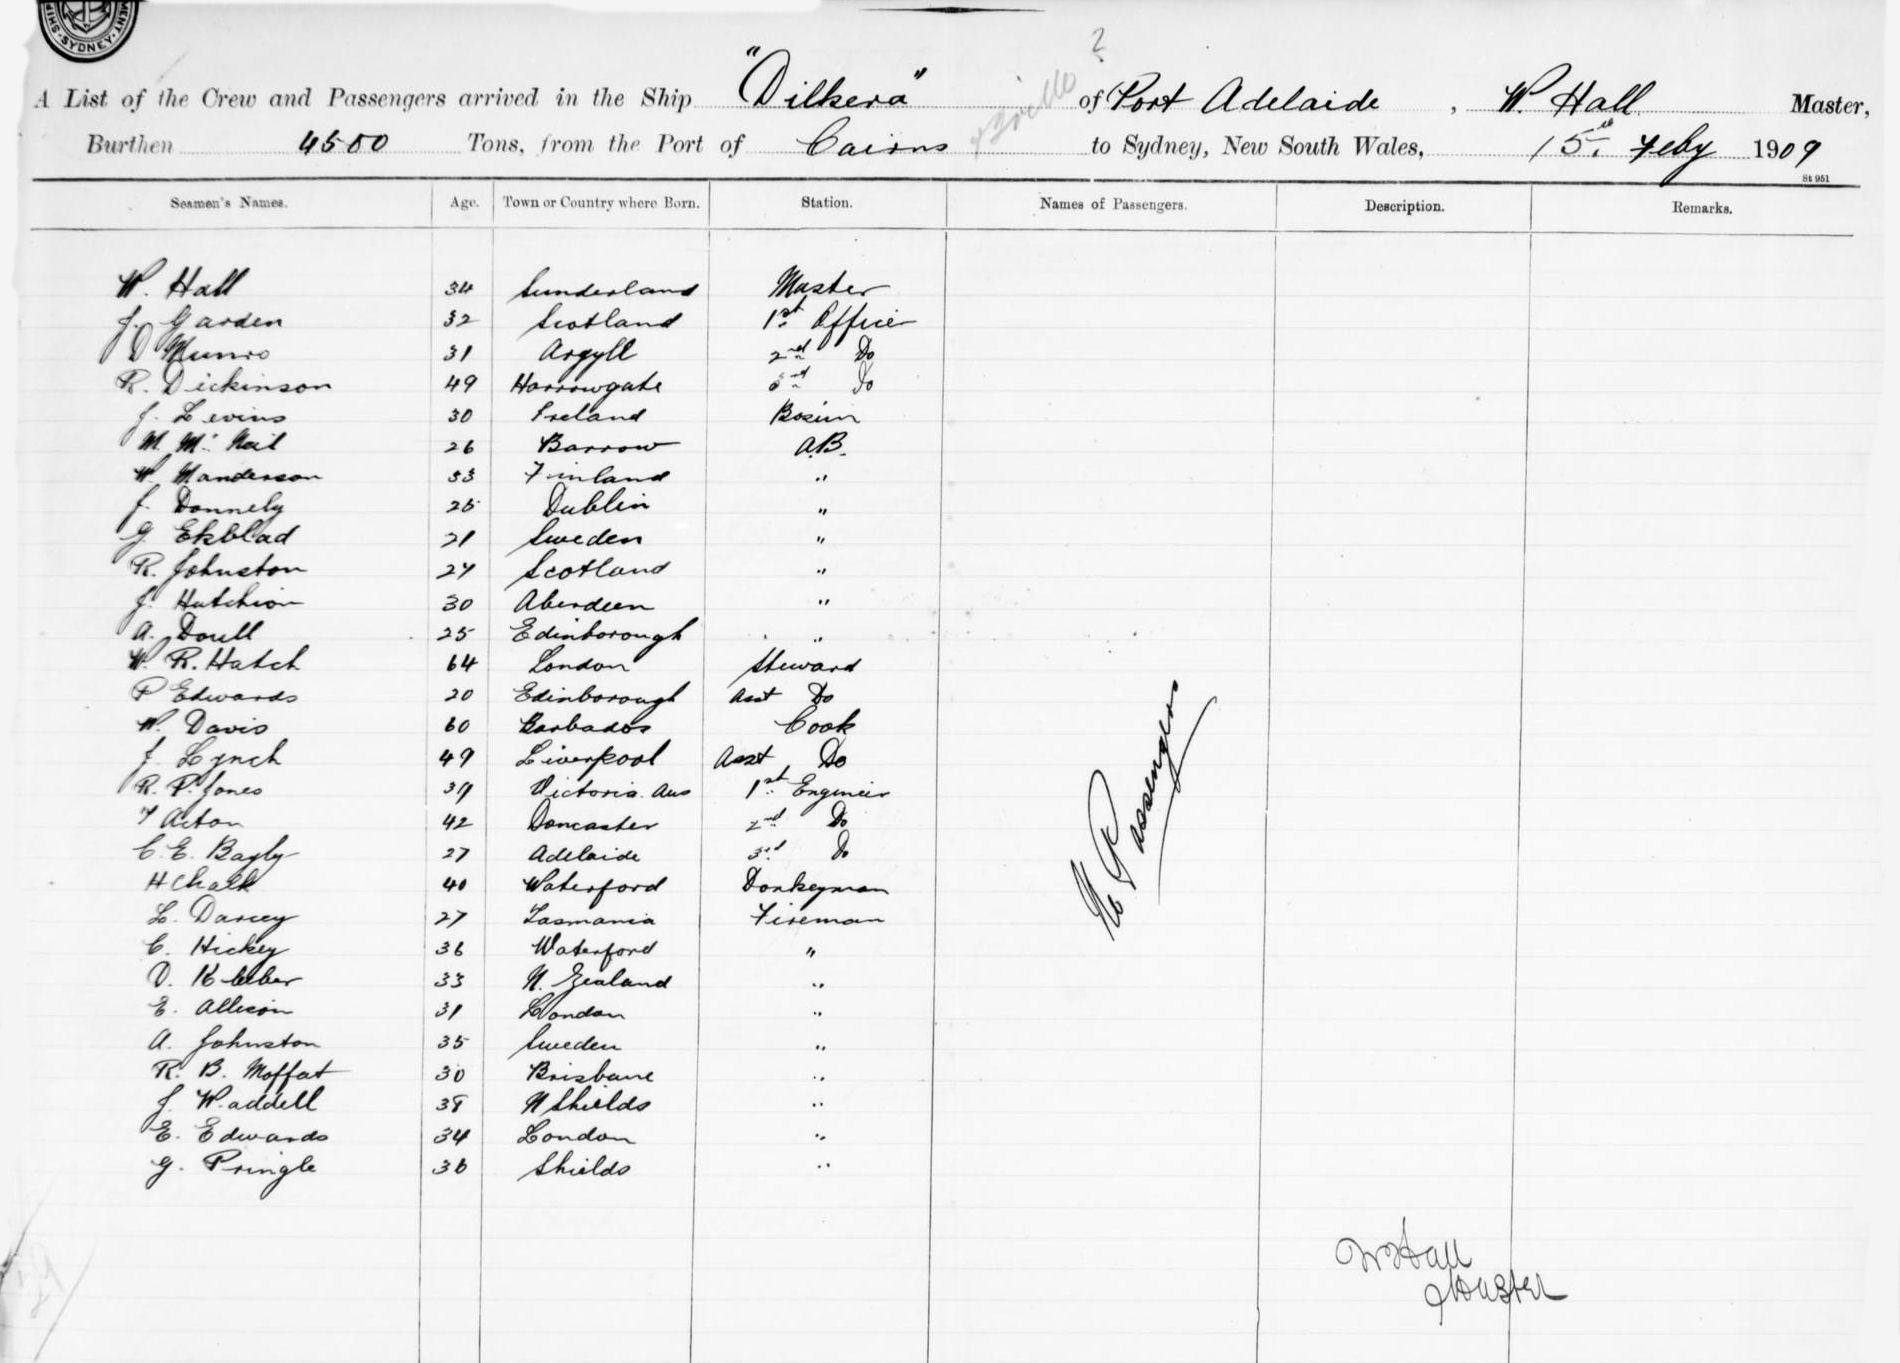 SYDNEY
A List of the Crew and Passengers arrived in the Ship "Dilkera" of Port Adelaide, W. Hall Master,
Burthen 4500 Tons, from the Port of Cairns to Sydney, New South Wales, 15th Feby 1909
St 951
Seamen's Names. Age. Town or Country where Born. Station. Names of Passengers. Description. Remarks.
W. Hall 34 Sunderland Master
J. Garden 32 Scotland 1st Officer
D Munro 31 Argyll 2nd Do
R. Dickinson 49 Harrowgate 3rd Do
J. Levins 30 Ireland Bosun
M. Mc Neil 26 Barrow A.B.
W. Manderson 33 Finland "
J. Donnely 25 Dublin "
G. Ekblad 21 Sweden "
R. Johnston 24 Scotland "
J. Hutchion 30 Aberdeen "
A. Doull 25 Edinborough "
W. R. Hatch 64 London Steward
P Edwards 20 Edinborough Asst Do
W. Davis 60 Barbados Cook
J. Lynch 49 Liverpool Asst Do
R. P. Jones 39 Victoria. Aus 1st Engineer
F Acton 42 Doncaster 2nd Do
C. E. Bagly 27 Adelaide 3rd Do
H Chalk 40 Waterford Donkeyman
L. Darcey 27 Tasmania Fireman
C. Hickey 36 Waterford "
D. 33 N. Zealand "
E. Allison 31 London "
A. Johnston 35 Sweden "
R. B. Moffat 30 Brisbane "
J. Waddell 38 N Shields "
E. Edwards 34 London "
G. Pringle 36 Shields "
No Passengers
W Hall
Master
29